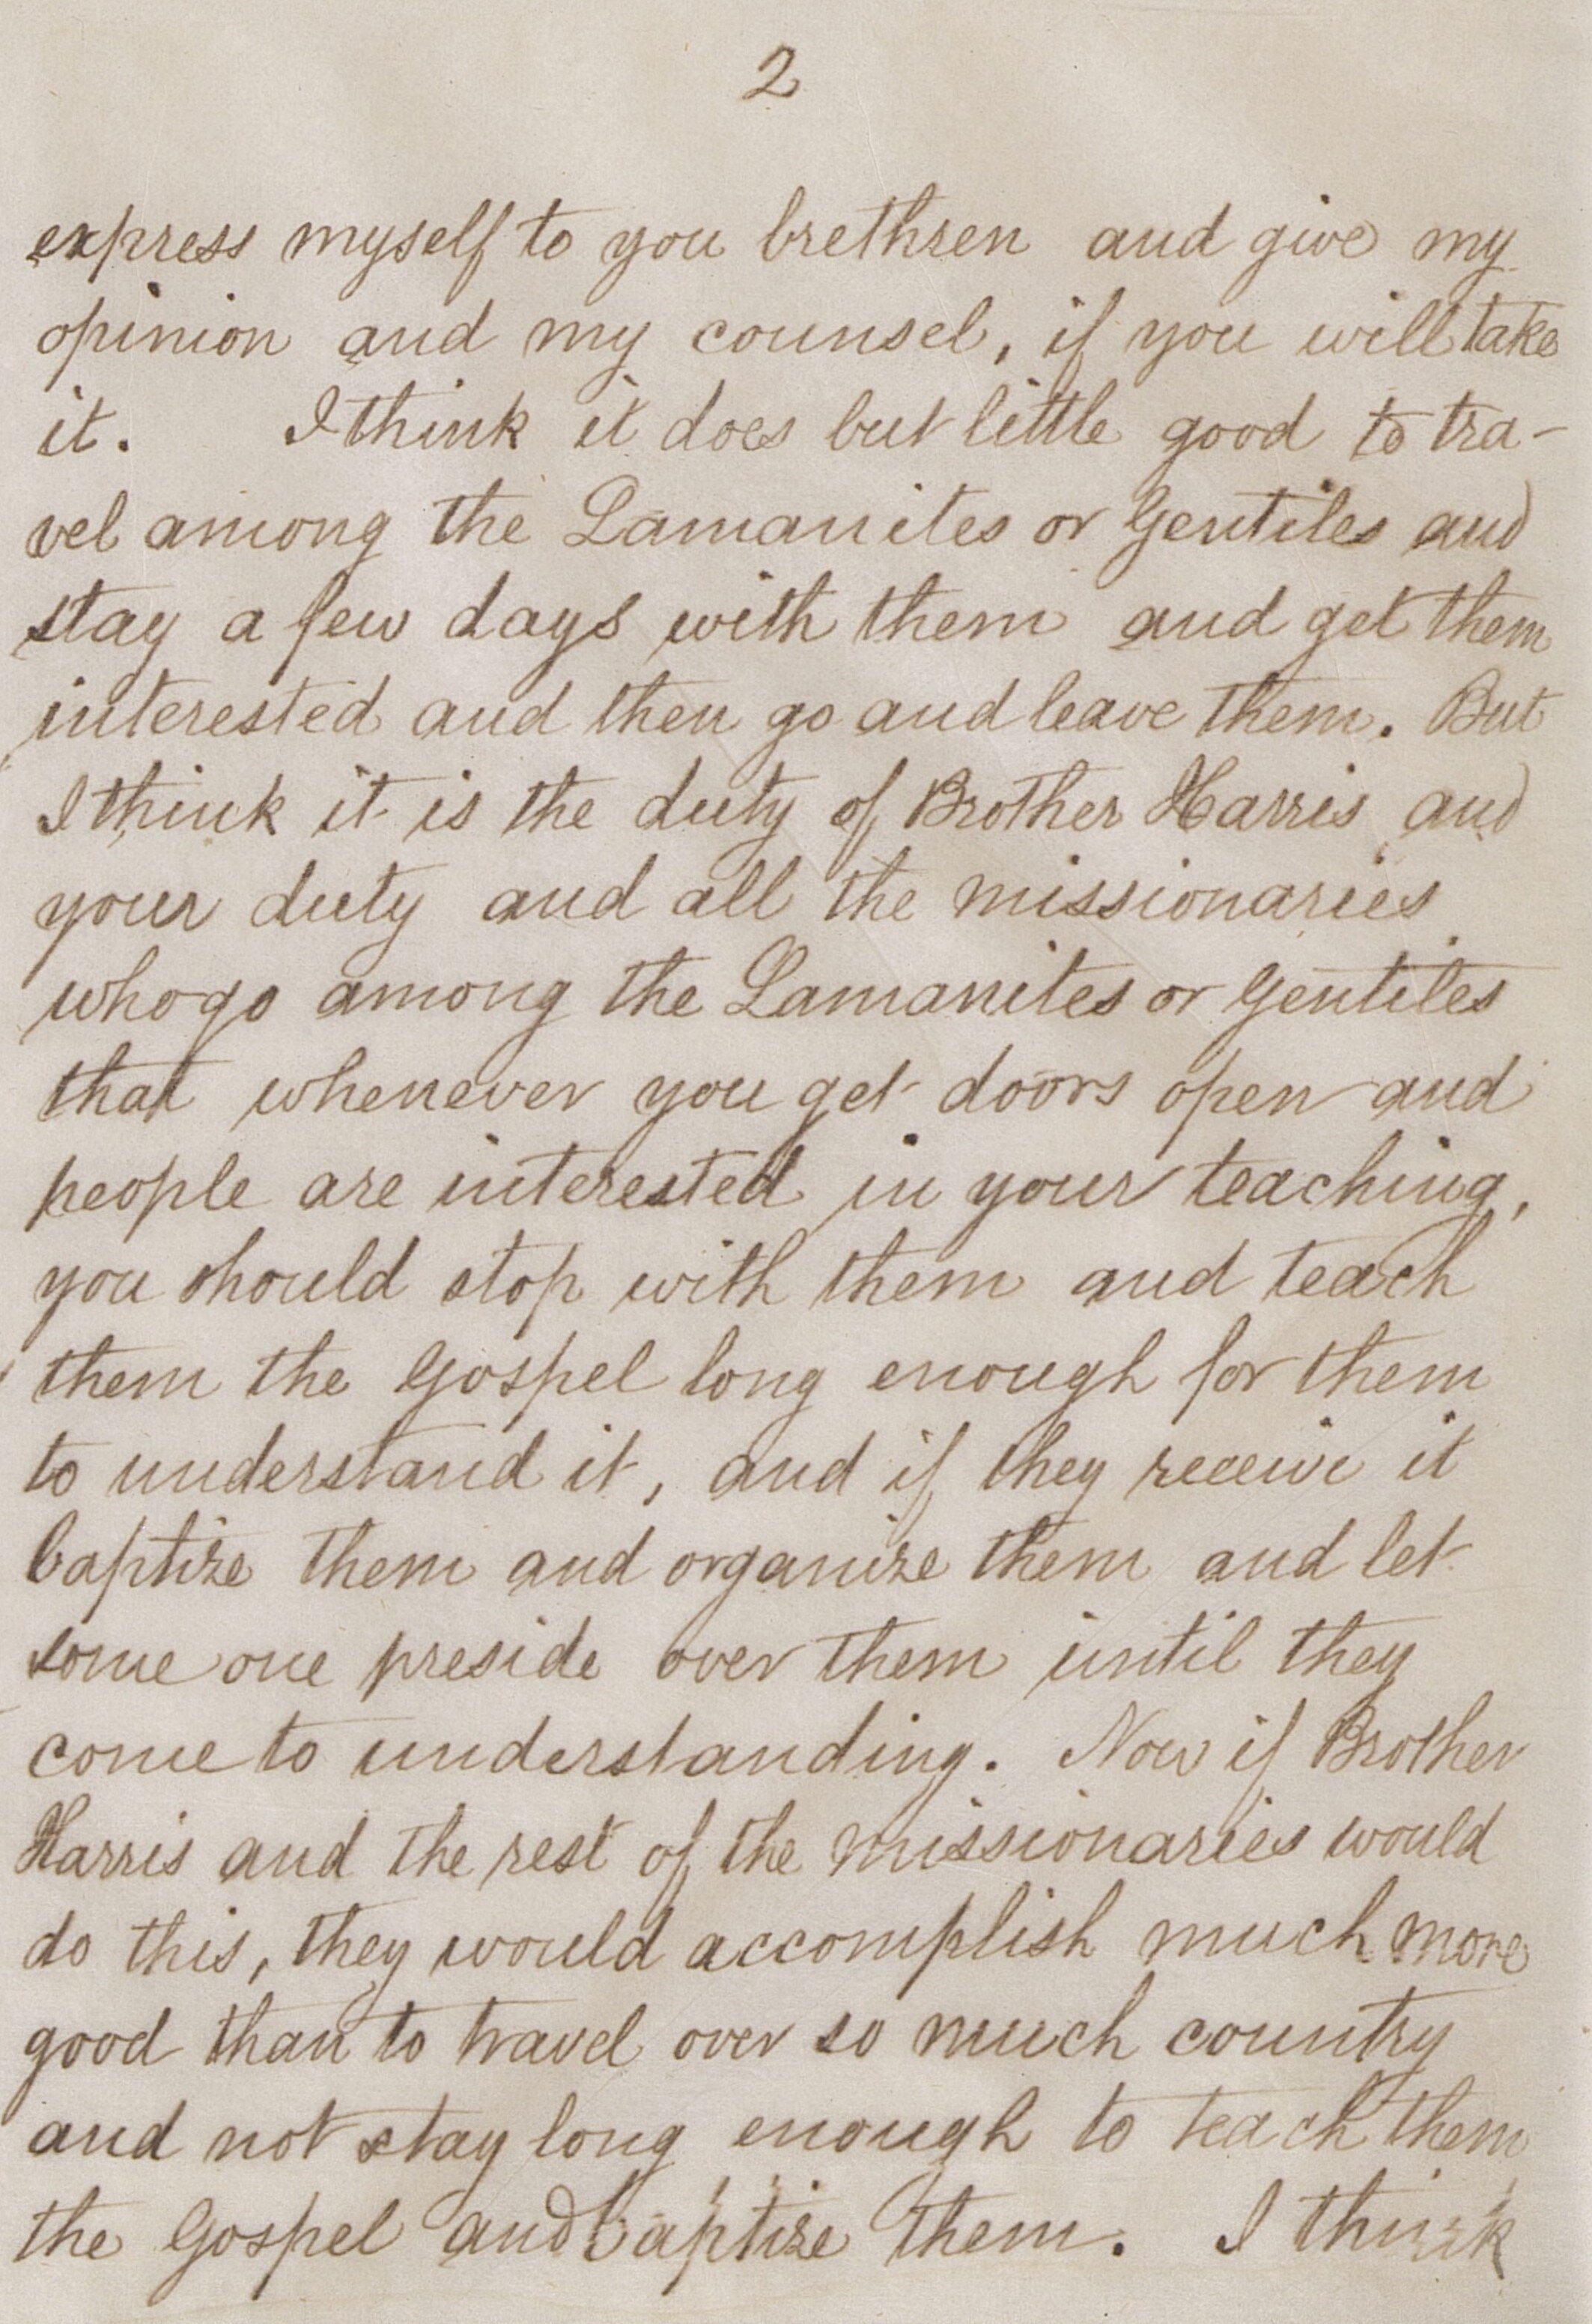 2
express myself to you brethren and give my
opinion and my counsel, if you will take
it. I think it does but little good to tra-
vel among the Lamanites or Gentiles and
stay a few days with them and get them
interested and then go and leave them. But
I think it is the duty of Brother Harris and
your duty and all the missionaries
who go among the Lamanites or Gentiles
that whenever you get doors open and
people are interested in your teaching,
you should stop with them and teach
them the Gospel long enough for them
to understand it, and if they receive it
baptize them and organize them and let
some one preside over them until they
come to understanding. Now if Brother
Harris and the rest of the missionaries would
do this, they would accomplish much more
good than to travel over so much country
and not stay long enough to teach them
the Gospel and baptize them. I think